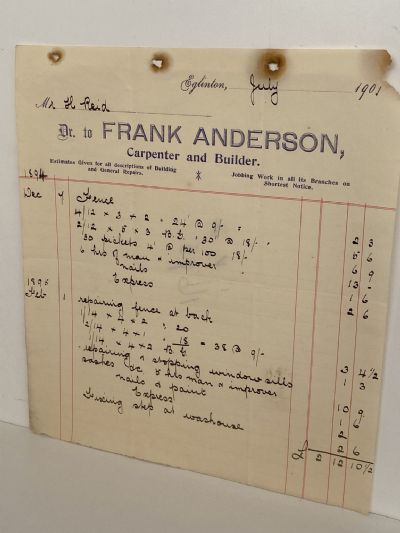 Eglinton, July 1901
Mr H Reid
Dr. to FRANK ANDERSON,
Carpenter and Builder.
Estimates Given for all descriptions of Building and General Repairs.
Jobbing Work in all its Branches on Shortest Notice.
1894
Dec 7 Fence
4/12 x 3 x 2 = 24' @ 9/- " 2 3
2/12 x 5 x 3 B.G. '30' @ 18/- 5 6
'30 pickets 4' @ per 100 18/- 6 9
6 hrs of man & improver 13 "
nails 1 6
Express 2 6
1895
Feb 1 repairing fence at back
1/14 x 4 x 2 : 20
1/14 x 4 x 2 B.G. 18 = 38 @ 9/- 3 4½
repairing & stopping window sills 1 3
sashes &c 5 hrs man & improver 10 9
nails & paint 1 6
Express 2
Fixing step at washouse 2 6
£ 2 12 10½